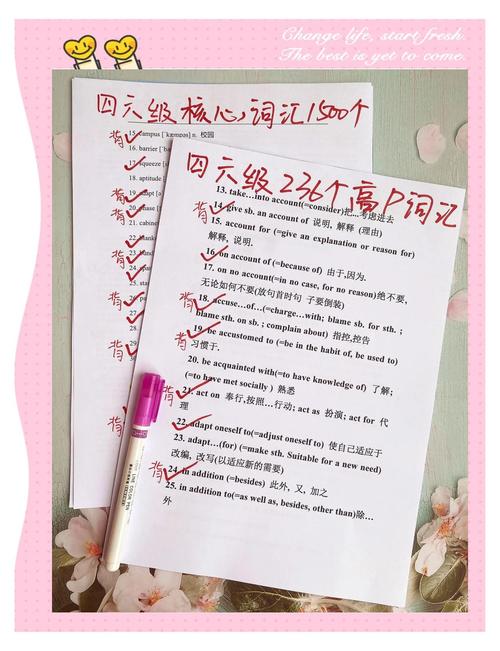 Change life, start fresh.
The best is yet to come.
四六级核心词汇1500个
背
15. campus [ˈkæmpəs] n. 校园
16. barrier [ˈbæ
17. squeeze [
18. aptitude
19. adapt
20. phase
21. cabinet
22.
23.
24.
25.
背
26.
27.
28.
背
背
四六级236个高P词汇
13. take…into account(=consider)把...考虑进去
背
14. give sb. an account of 说明, 解释 (理由)
15. account for (=give an explanation or reason for)
解释, 说明.
16. on account of (=because of) 由于,因为.
17. on no account(=in no case, for no reason)绝不要,
无论如何不要(放句首时句 子要倒装)
背
18. accuse…of…(=charge…with; blame sb. for sth. ;
blame sth. on sb. ; complain about) 指控,控告
背
19. be accustomed to (=be in the habit of, be used to)
习惯于.
20. be acquainted with(=to have knowledge of) 了解;
(=to have met socially ) 熟悉
背
21. act on 奉行,按照…行动; act as 扮演; act for 代
理
22. adapt oneself to(=adjust oneself to) 使自己适应于
23. adapt…(for) (=make sth. Suitable for a new need)
改编, 改写(以适应新的需要)
背
24. in addition (=besides) 此外, 又, 加之
25. in addition to(=as well as, besides, other than)除…
外